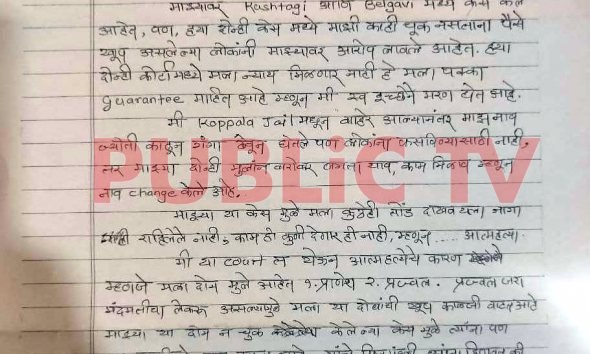 माझ्यावर Kushtagi आणि Belgavi मध्ये केस केले
आहेत, पण, ह्या दोन्ही केस मध्ये माझी काही चूक नसताना पैसे
खूप असलेल्या लोकांनी माझ्यावर आरोप लावले आहेत. ह्या
दोन्ही कोर्टामध्ये मला न्याय मिळणार नाही हे मला पक्का
Guarantee माहित आहे म्हणून मी स्व इच्छेने मरण घेत आहे.
मी Koppala Jail मधून बाहेर आल्यानंतर माझ नाव
ज्योती काढून गंगा ठेवून घेतले पण लोकांना फसविण्यासाठी नाही,
तर माझ्या दोन्ही मुलांना बरोबर जगता याव, काम मिळाव म्हणून
नाव change केले आहे.
PUBLiC TV
माझ्या या केस मुळे मला कुठेही तोंड दाखवायला जागा
राहिलेले नाही, काम ही कुणी देणार ही नाही, म्हणून ..... आत्महत्या.
मी या count ला येऊन आत्महत्येचे कारण
म्हणजे मला दोन मुले आहेत १. प्राणेश २. प्रज्वल. प्रज्वल जरा
मंदमतीचा लेकरू असल्यामुळे मला या दोघांची खूप काळजी वाटत आहे
माझ्या या दोन न चुक केलेल्या केस मुळे त्यांना पण